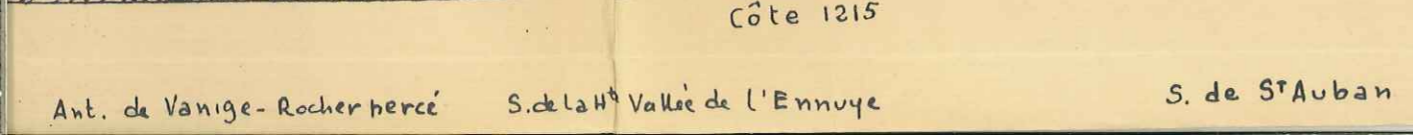 Côte 1215
Ant. de Vanige - Rocher percé S. de la Hte Vallée de l'Ennuye S. de St Auban